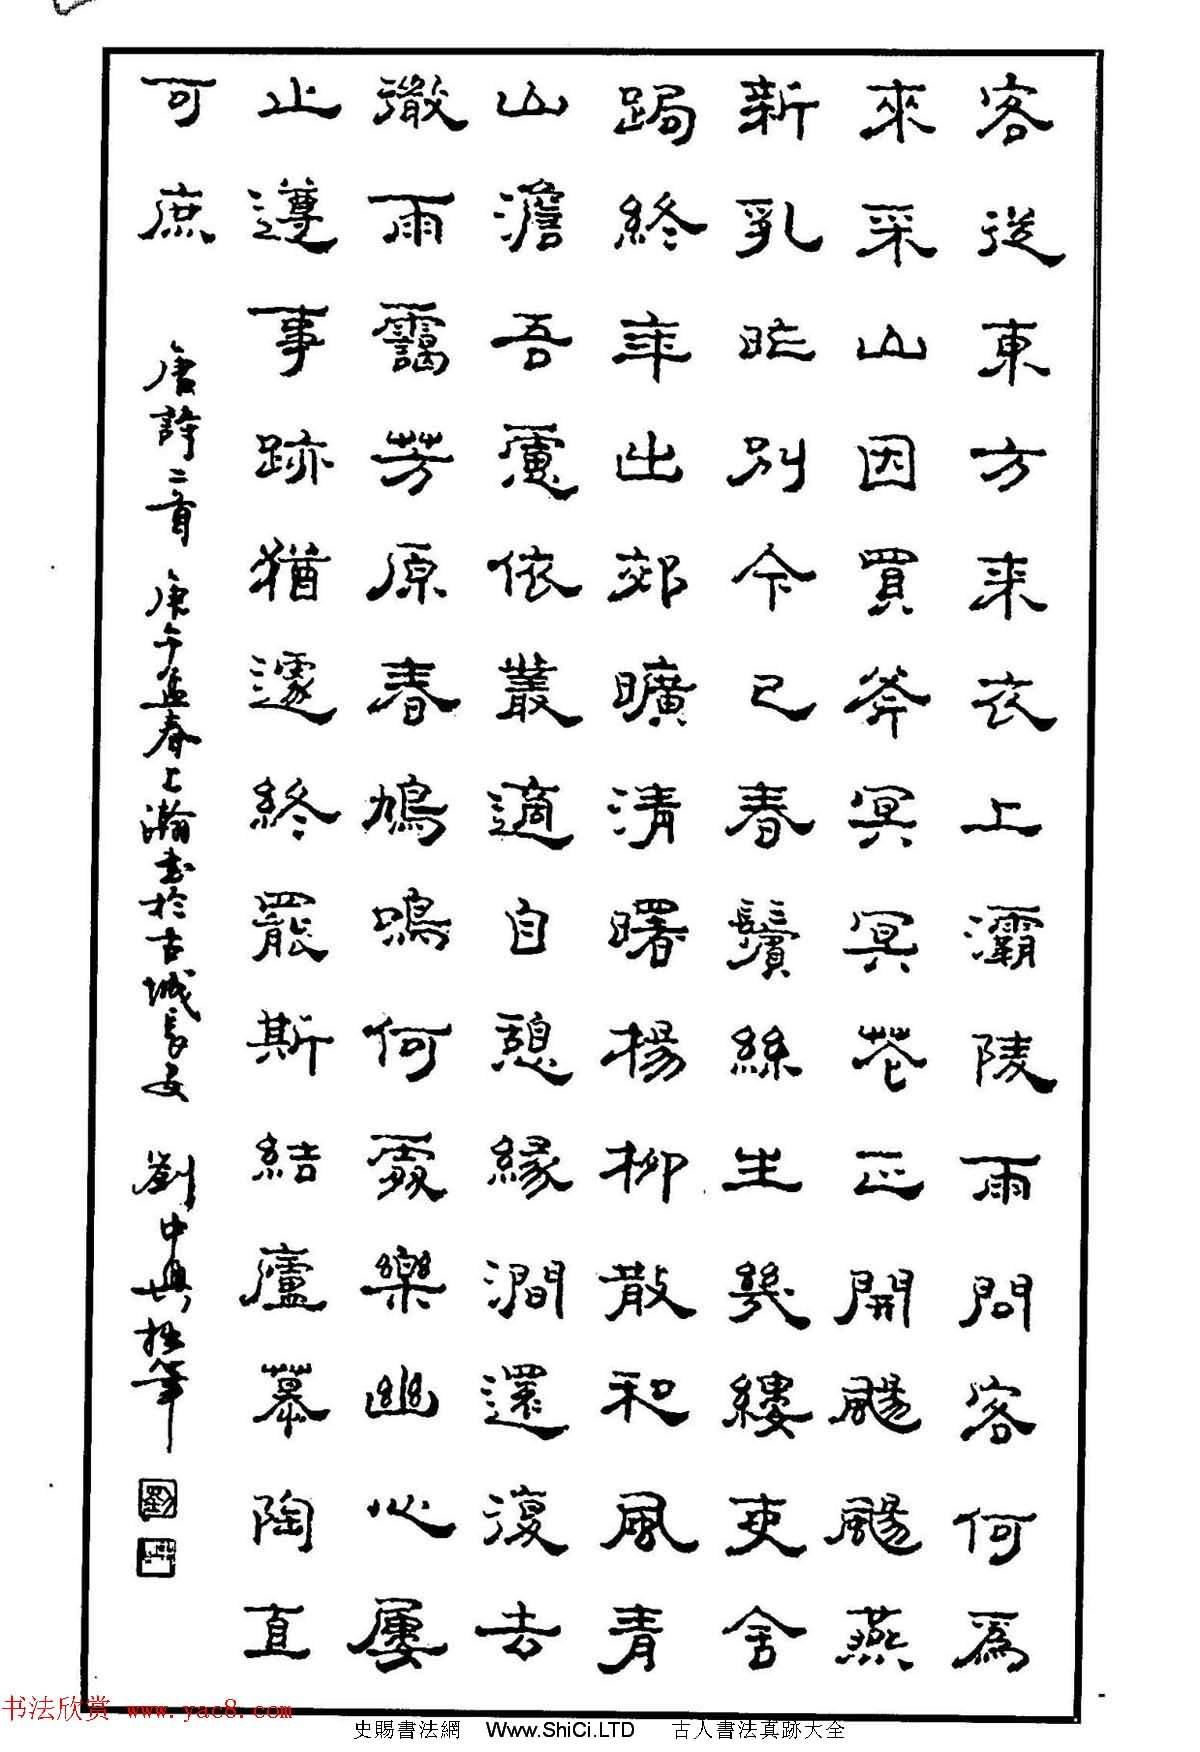 客從東方來衣上灞陵雨問客何為
來采山因買斧冥冥花正開颺颺燕
新乳昨別今已春鬢絲生幾縷吏舍
跼終年出郊曠清曙楊柳散和風青
山澹吾慮依叢適自憩緣澗還復去
微雨靄芳原春鳩鳴何處樂幽心屢
止遵事跡猶遽終罷斯結廬慕陶直
可庶 唐詩二首 庚午孟春上瀚書於古城長安 劉中興拙筆
书法欣赏 www.yac8.com
史賜書法網 Www.ShiCi.LTD 古人書法真跡大全